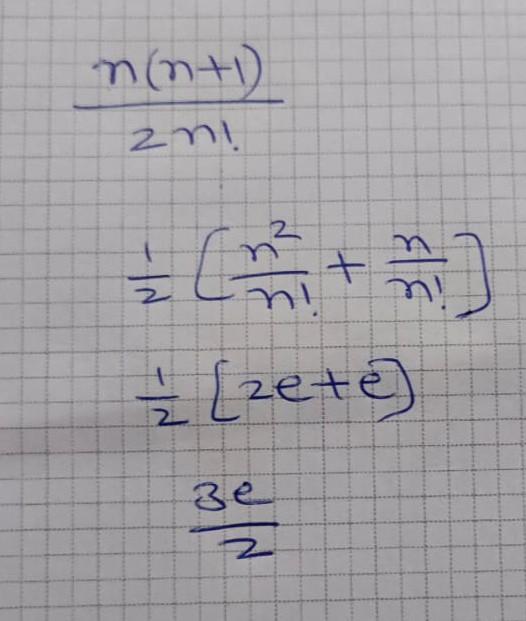 n(n+1)
2n!
1/2 [n²/n! + n/n!]
1/2 [2e+e]
3e
2